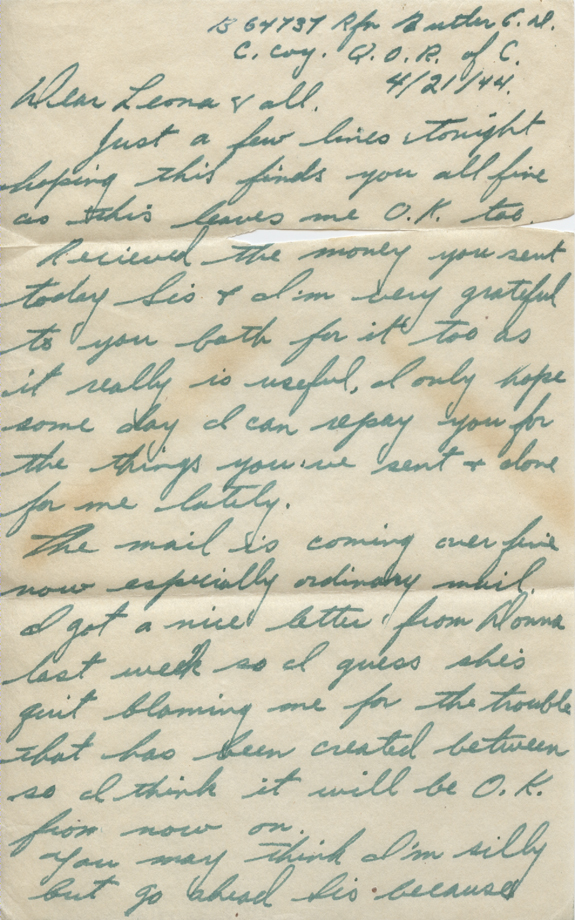 B 64737 Rfn Butler E. W.
C. Coy. Q. O. R. of C.
4/21/44.
Dear Leona & all.
Just a few lines tonight
hoping this finds you all fine
as this leaves me O.K. too.
Recieved the money you sent
today Sis & I'm very grateful
to you both for it too as
it really is useful, I only hope
some day I can repay you for
the things you've sent & done
for me lately.
The mail is coming over fine
now especially ordinary mail.
I got a nice letter from Donna
last week so I guess she's
quit blaming me for the trouble
that has been created between
so I think it will be O.K.
from now on.
You may think I'm silly
but go ahead Sis because